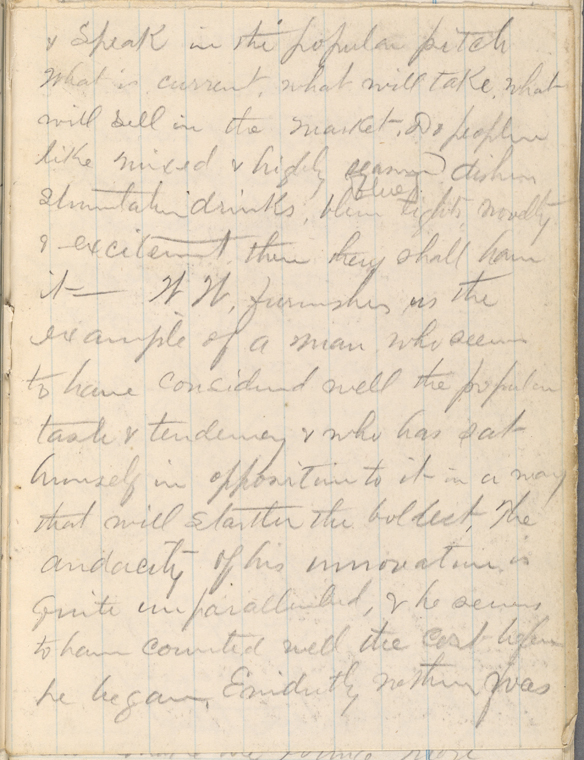 & speak in the popular pitch
what is current, what will take, what
will sell in the market. Do people
like mixed & highly seasoned dishes
stimulating drinks, blue lights, novelty
blue
& excitement then they shall have
it — W W, furnishes us the
example of a man who seems
to have considered well the popular
taste & tendency & who has sat
himself in opposition to it in a way
that will startle the boldest, The
audacity of his innovation is
quite unparalleled, & he seems
to have counted well the cost before
he began, Evidently nothing was